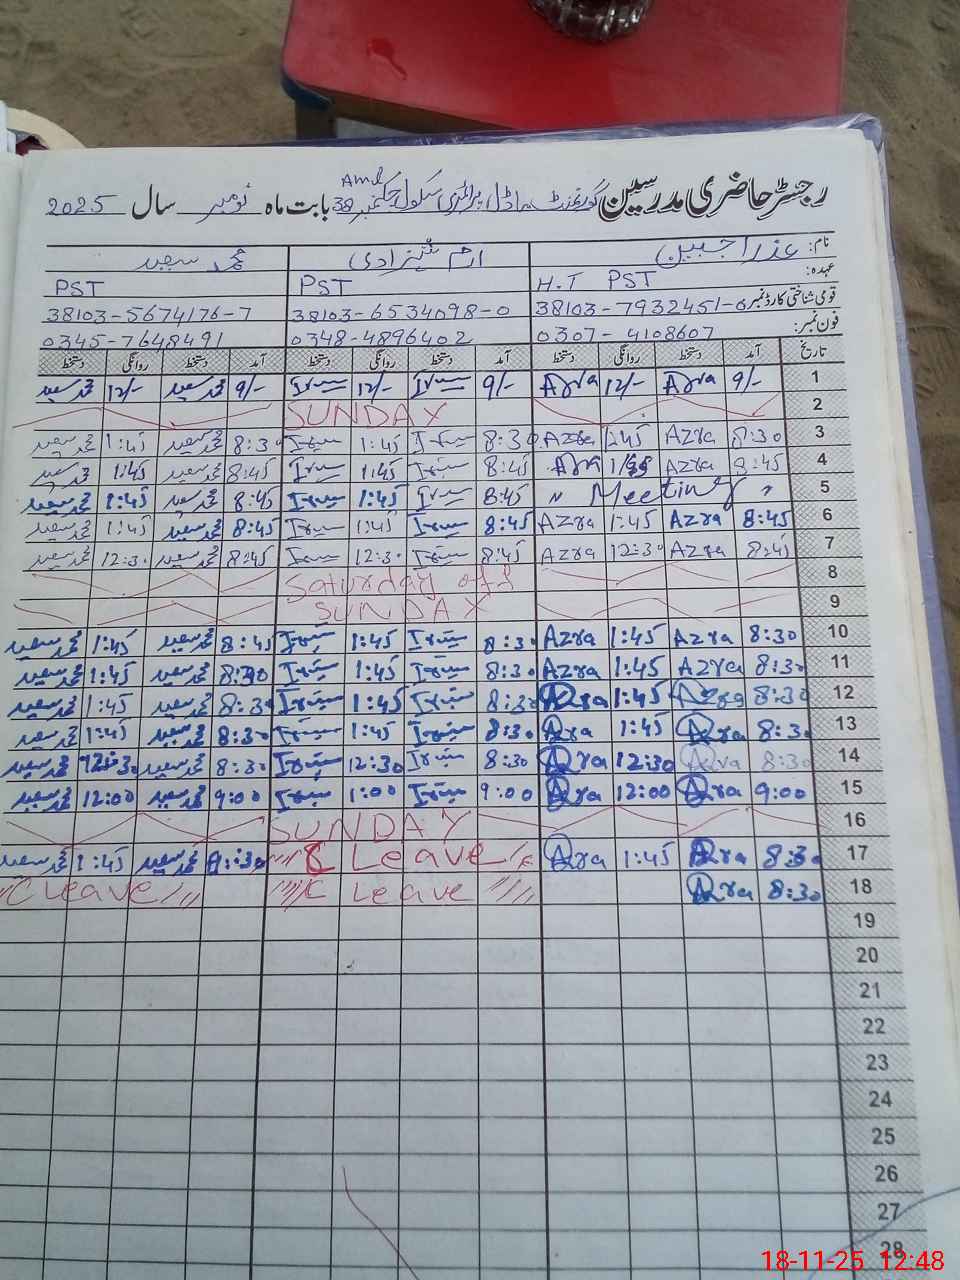 رجسٹر حاضری مدرسین گورنمنٹ ماڈل پرائمری سکول چک نمبر 38 Aml بابت ماہ نومبر سال 2025
نام: عذرا جبیں ارم شہزادی محمد سعید
عہدہ: H.T PST PST PST
قومی شناختی کارڈ نمبر 38103-7932451-0 38103-6534098-0 38103-5674176-7
فون نمبر: 0307-4108607 0348-4896402 0345-7648491
تاریخ آمد دستخط روانگی دستخط آمد دستخط روانگی دستخط آمد دستخط روانگی دستخط
1 9/- Azra 12/- Azra 9/- 12/- 9/- محمد سعید 12/- محمد سعید
2 SUNDAY
3 8:30 Azra 1:45 Azra 8:30 1:45 8:30 محمد سعید 1:45 محمد سعید
4 8:45 Azra Azra 8:45 1:45 8:45 محمد سعید 1:45 محمد سعید
5 " Meeting " 8:45 1:45 8:45 محمد سعید 1:45 محمد سعید
6 8:45 Azra 1:45 Azra 8:45 1:45 8:45 محمد سعید 1:45 محمد سعید
7 8:45 Azra 12:30 Azra 8:45 12:30 8:45 محمد سعید 12:30 محمد سعید
8 Saturday off
9 SUNDAY
10 8:30 Azra 1:45 Azra 8:30 1:45 8:45 محمد سعید 1:45 محمد سعید
11 8:30 Azra 1:45 Azra 8:30 1:45 8:30 محمد سعید 1:45 محمد سعید
12 8:30 Azra 1:45 Azra 8:30 1:45 8:30 محمد سعید 1:45 محمد سعید
13 8:30 Azra 1:45 Azra 8:30 1:45 8:30 محمد سعید 1:45 محمد سعید
14 8:30 Azra 12:30 Azra 8:30 12:30 8:30 محمد سعید 12:30 محمد سعید
15 9:00 Azra 12:00 Azra 9:00 1:00 9:00 محمد سعید 12:00 محمد سعید
16 SUNDAY
17 8:30 Azra 1:45 Azra C Leave 8:30 محمد سعید 1:45 محمد سعید
18 8:30 Azra C Leave C Leave
19
20
21
22
23
24
25
26
27
28
18-11-25 12:48